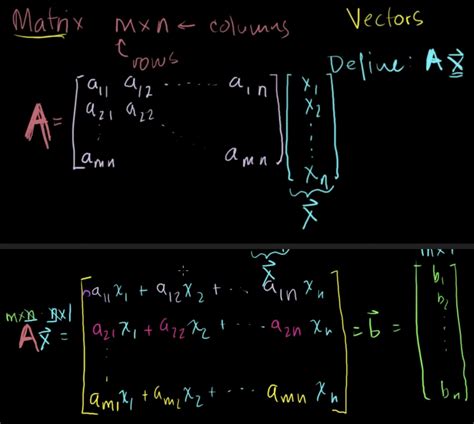 Matrix m×n ← columns Vectors
rows
Define: A x⃗
A = [ a₁₁ a₁₂ ...... a₁n ] [ x₁ ]
a₂₁ a₂₂ x₂
⋮ ⋱ ⋮
amn amn xn
x⃗
x⃗ m×1
m×n n×1
A x⃗ = [ a₁₁x₁ + a₁₂x₂ + ... a₁n xn
a₂₁x₁ + a₂₂x₂ + ... a₂n xn
⋮
am₁x₁ + am₂x₂ + ... amn xn ] = b⃗ = [ b₁
b₂
⋮
bn ]